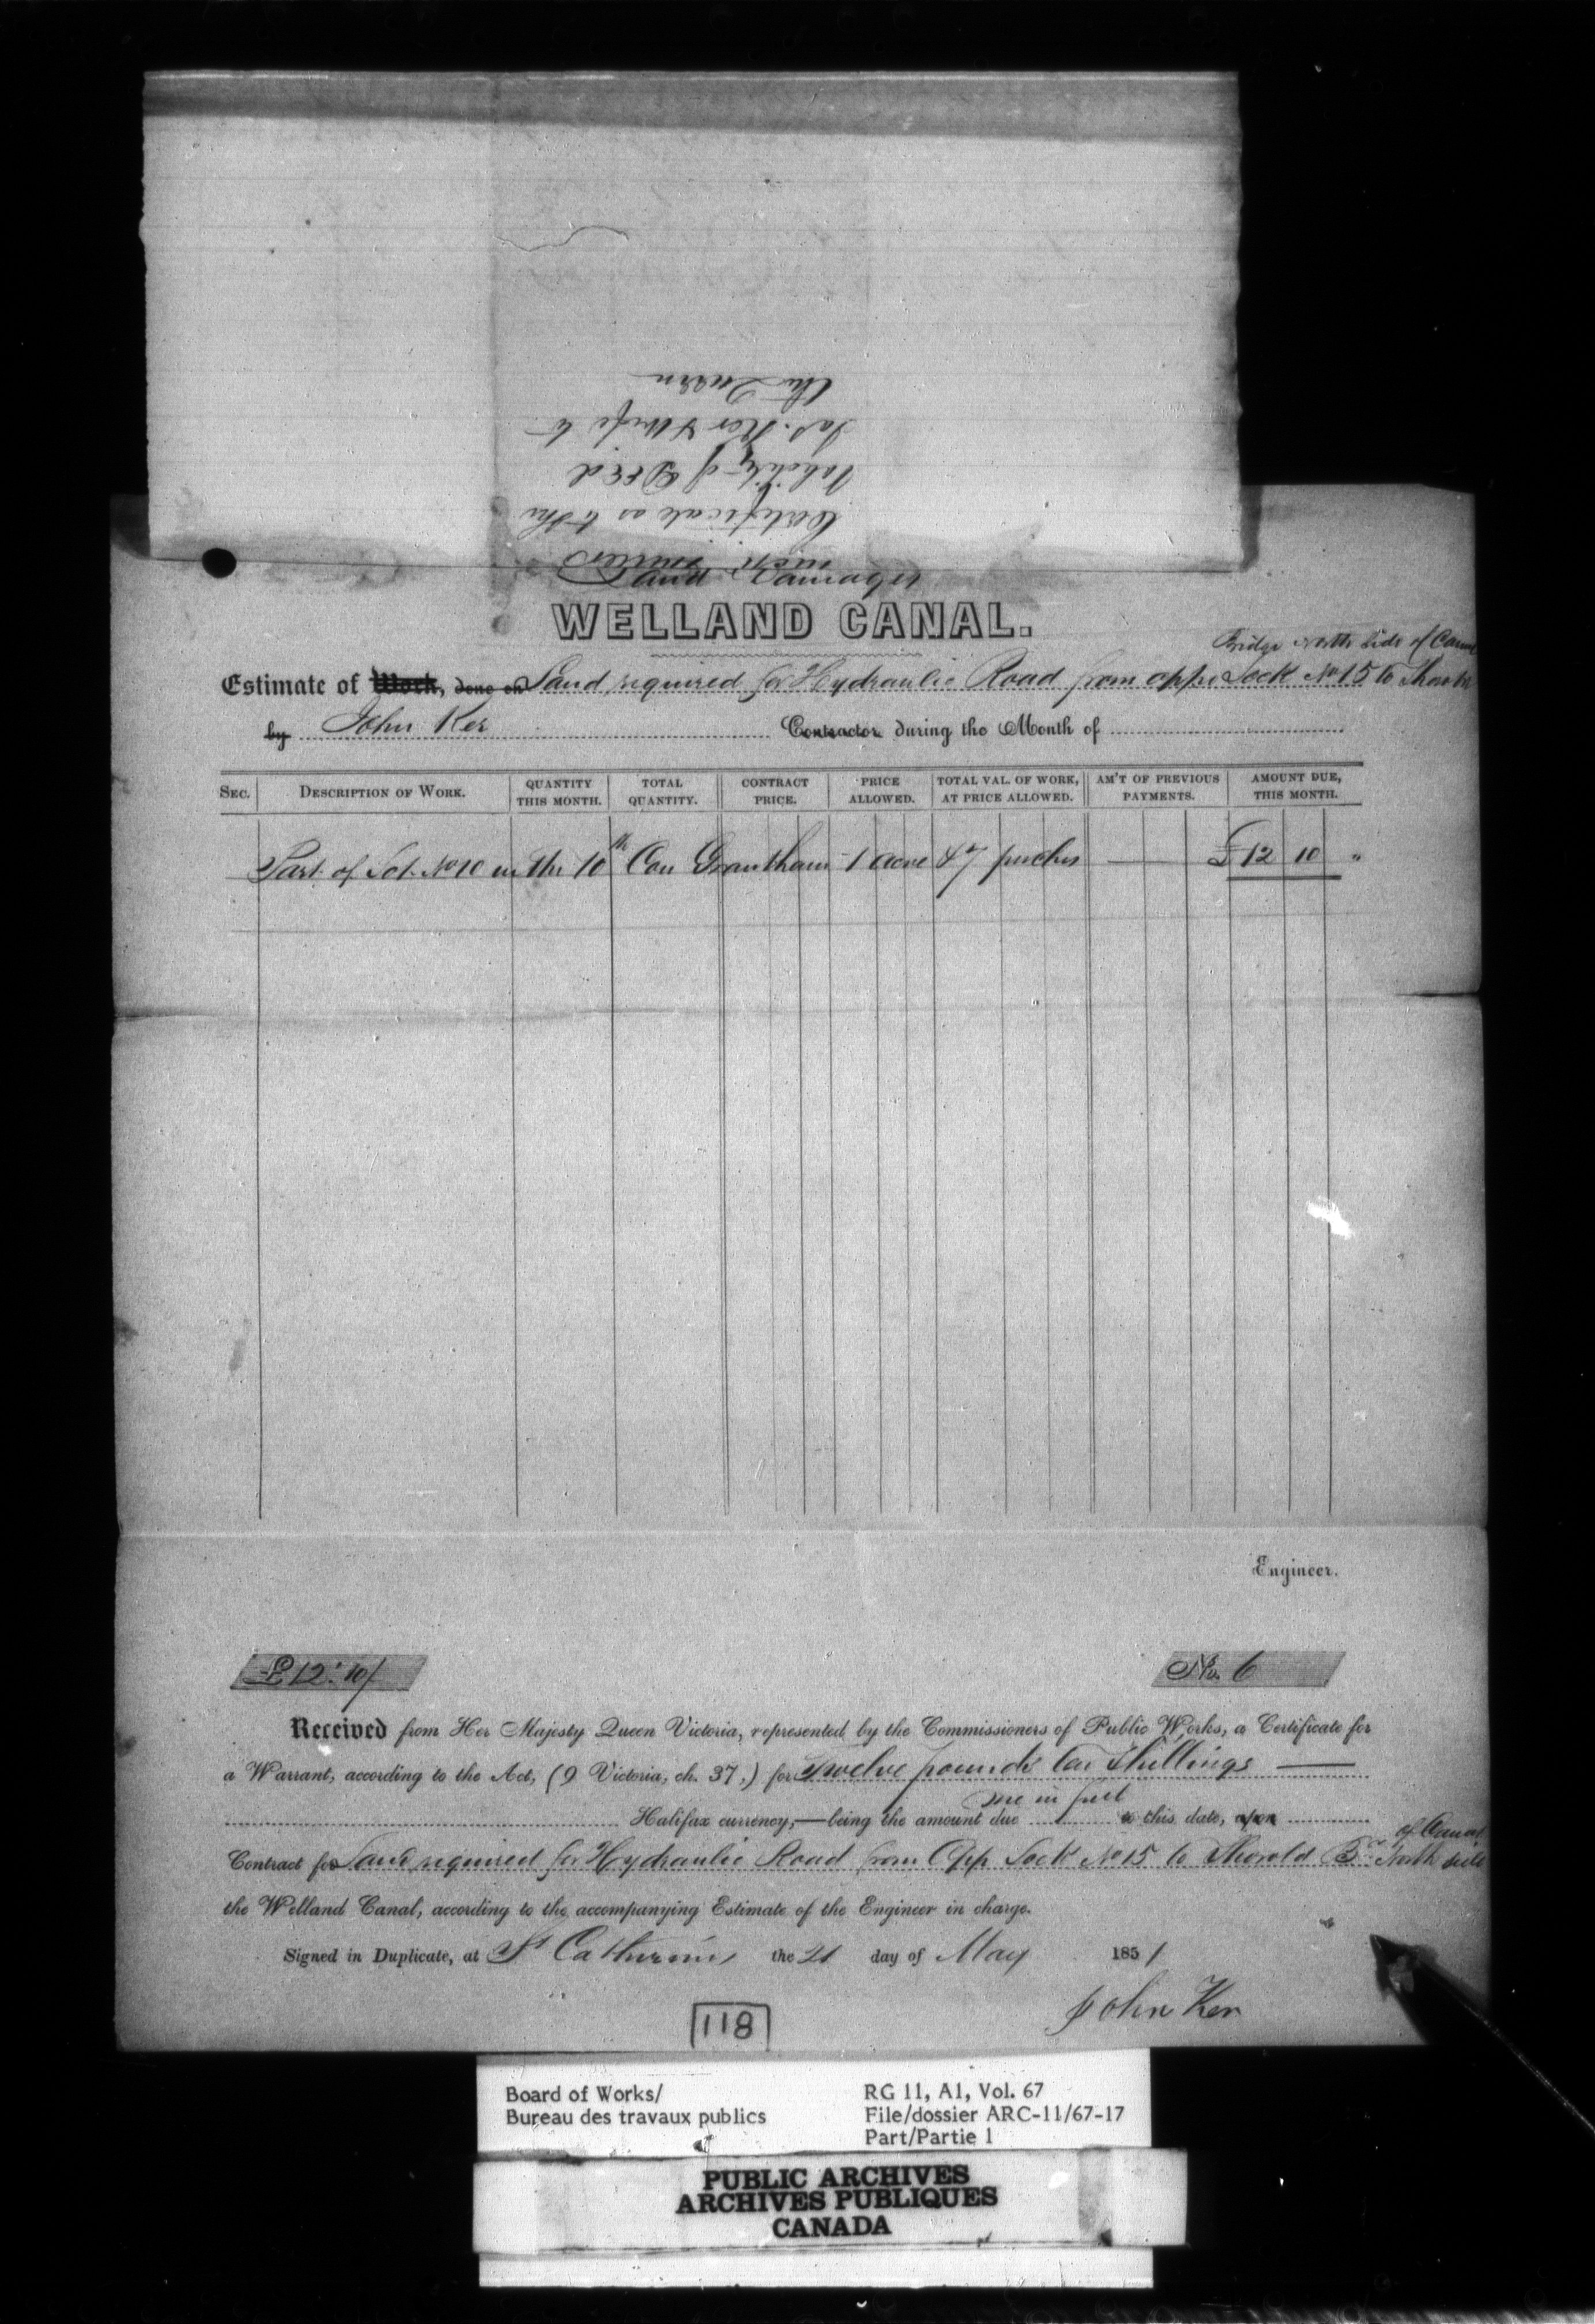 the Queen
Jas. Ker & Wife to
Validity of Deed
Certificate as to the
Land Damages
WELLAND CANAL.
Bridge North Side of Canal
Estimate of Work, done on Land required for Hydraulic Road from oppe. Lock No 15 to Thorold
by John Ker Contractor during the Month of
SEC. DESCRIPTION OF WORK. QUANTITY THIS MONTH. TOTAL QUANTITY. CONTRACT PRICE. PRICE ALLOWED. TOTAL VAL. OF WORK, AT PRICE ALLOWED. AM'T OF PREVIOUS PAYMENTS. AMOUNT DUE, THIS MONTH.
Part of Lot No 10 in the 10th Con Grantham 1 acre 47 perches — £12 10 "
Engineer.
£12:10/ No. 6
Received from Her Majesty Queen Victoria, represented by the Commissioners of Public Works, a Certificate for
a Warrant, according to the Act, (9 Victoria, ch. 37,) for Twelve pounds ten Shillings —
me in full
Halifax currency,—being the amount due to this date, upon
of Canal
Contract for Land required for Hydraulic Road from Opp Lock No 15 to Thorold Br. North side
the Welland Canal, according to the accompanying Estimate of the Engineer in charge.
Signed in Duplicate, at St Catherines the 21 day of May 1851
John Ker
118
Board of Works/ RG 11, A1, Vol. 67
Bureau des travaux publics File/dossier ARC-11/67-17
Part/Partie 1
PUBLIC ARCHIVES
ARCHIVES PUBLIQUES
CANADA